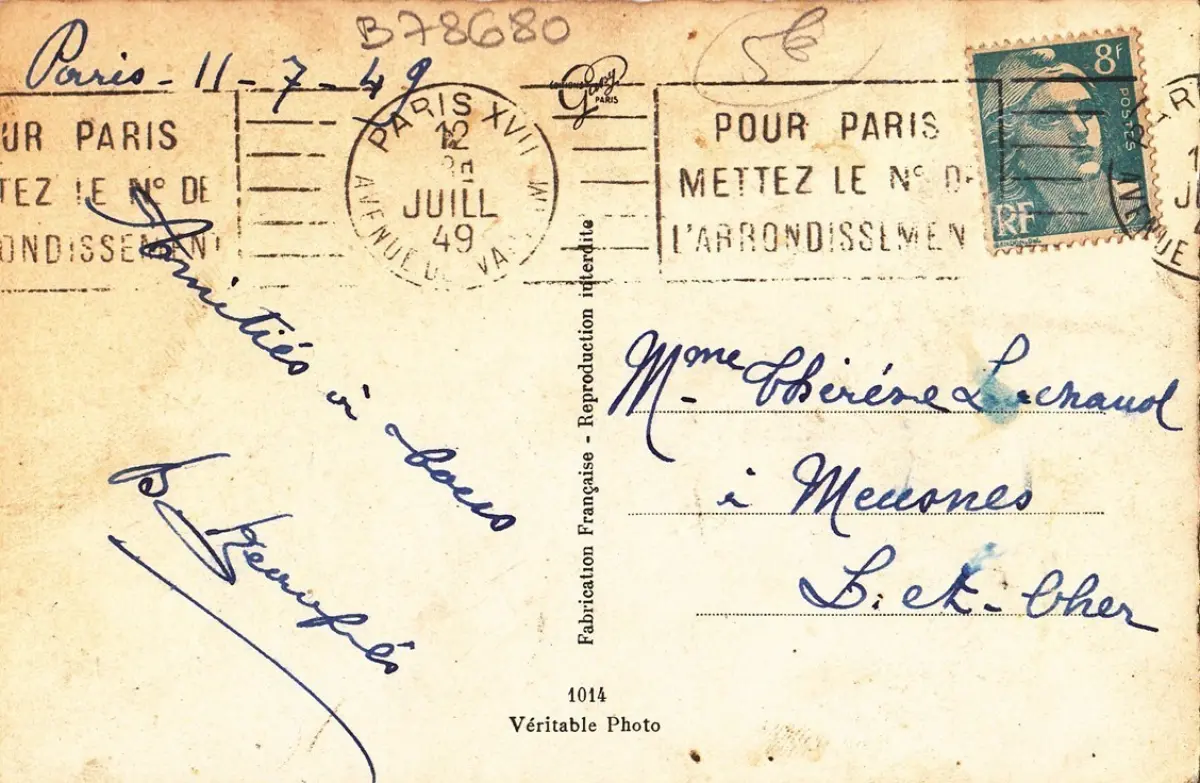 B78680
5
Paris - 11 - 7 - 49
GUY
PARIS
8F
POSTES
RF
UR PARIS
TEZ LE N° DE
ONDISSEMENT
PARIS XVII
12
JUILL
49
AVENUE DE WA
POUR PARIS
METTEZ LE N° DE
L'ARRONDISSEMEN
Amitiés à tous
B
Mme Thérése Lachaud
à Meusnes
L. et - Cher
Fabrication Française - Reproduction interdite
1014
Véritable Photo